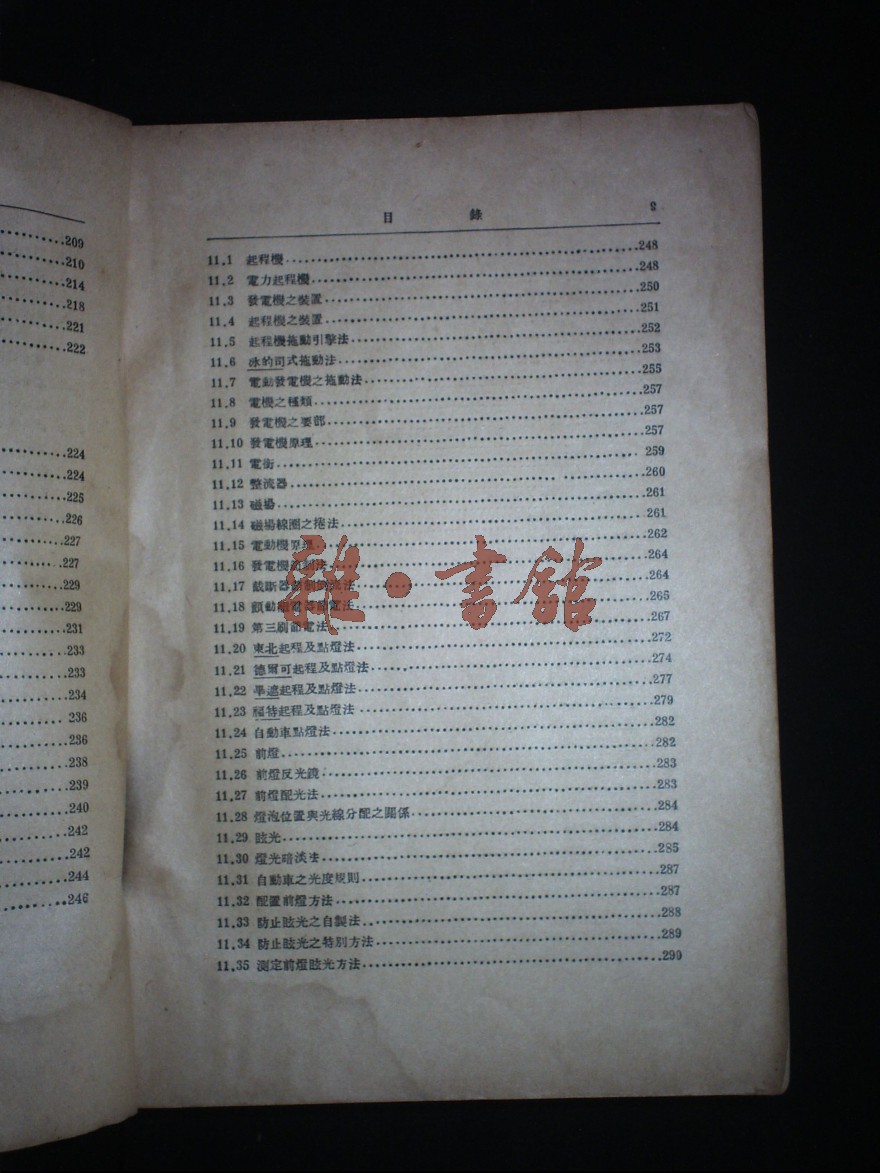 209
210
214
218
221
222
224
224
225
226
227
227
229
229
231
233
233
234
236
236
238
239
240
242
242
244
246
目 錄 9
11.1 起程機 248
11.2 電力起程機 248
11.3 發電機之裝置 250
11.4 起程機之裝置 251
11.5 起程機拖動引擎法 252
11.6 泳的司式拖動法 253
11.7 電動發電機之拖動法 255
11.8 電機之種類 257
11.9 發電機之要部 257
11.10 發電機原理 257
11.11 電街 259
11.12 整流器 260
11.13 磁場 261
11.14 磁場線圈之捲法 261
11.15 電動機原理 262
11.16 發電機節制法 264
11.17 截斷器 法 264
11.18 顫動 電法 265
11.19 第三刷節電法 267
11.20 東北起程及點燈法 272
11.21 德爾可起程及點燈法 274
11.22 畢遮起程及點燈法 277
11.23 福特起程及點燈法 279
11.24 自動車點燈法 282
11.25 前燈 282
11.26 前燈反光鏡 283
11.27 前燈配光法 283
11.28 燈泡位置與光線分配之關係 284
11.29 眩光 284
11.30 燈光暗淡法 285
11.31 自動車之光度規則 287
11.32 配置前燈方法 287
11.33 防止眩光之自製法 288
11.34 防止眩光之特別方法 289
11.35 測定前燈眩光方法 290
雜·書館